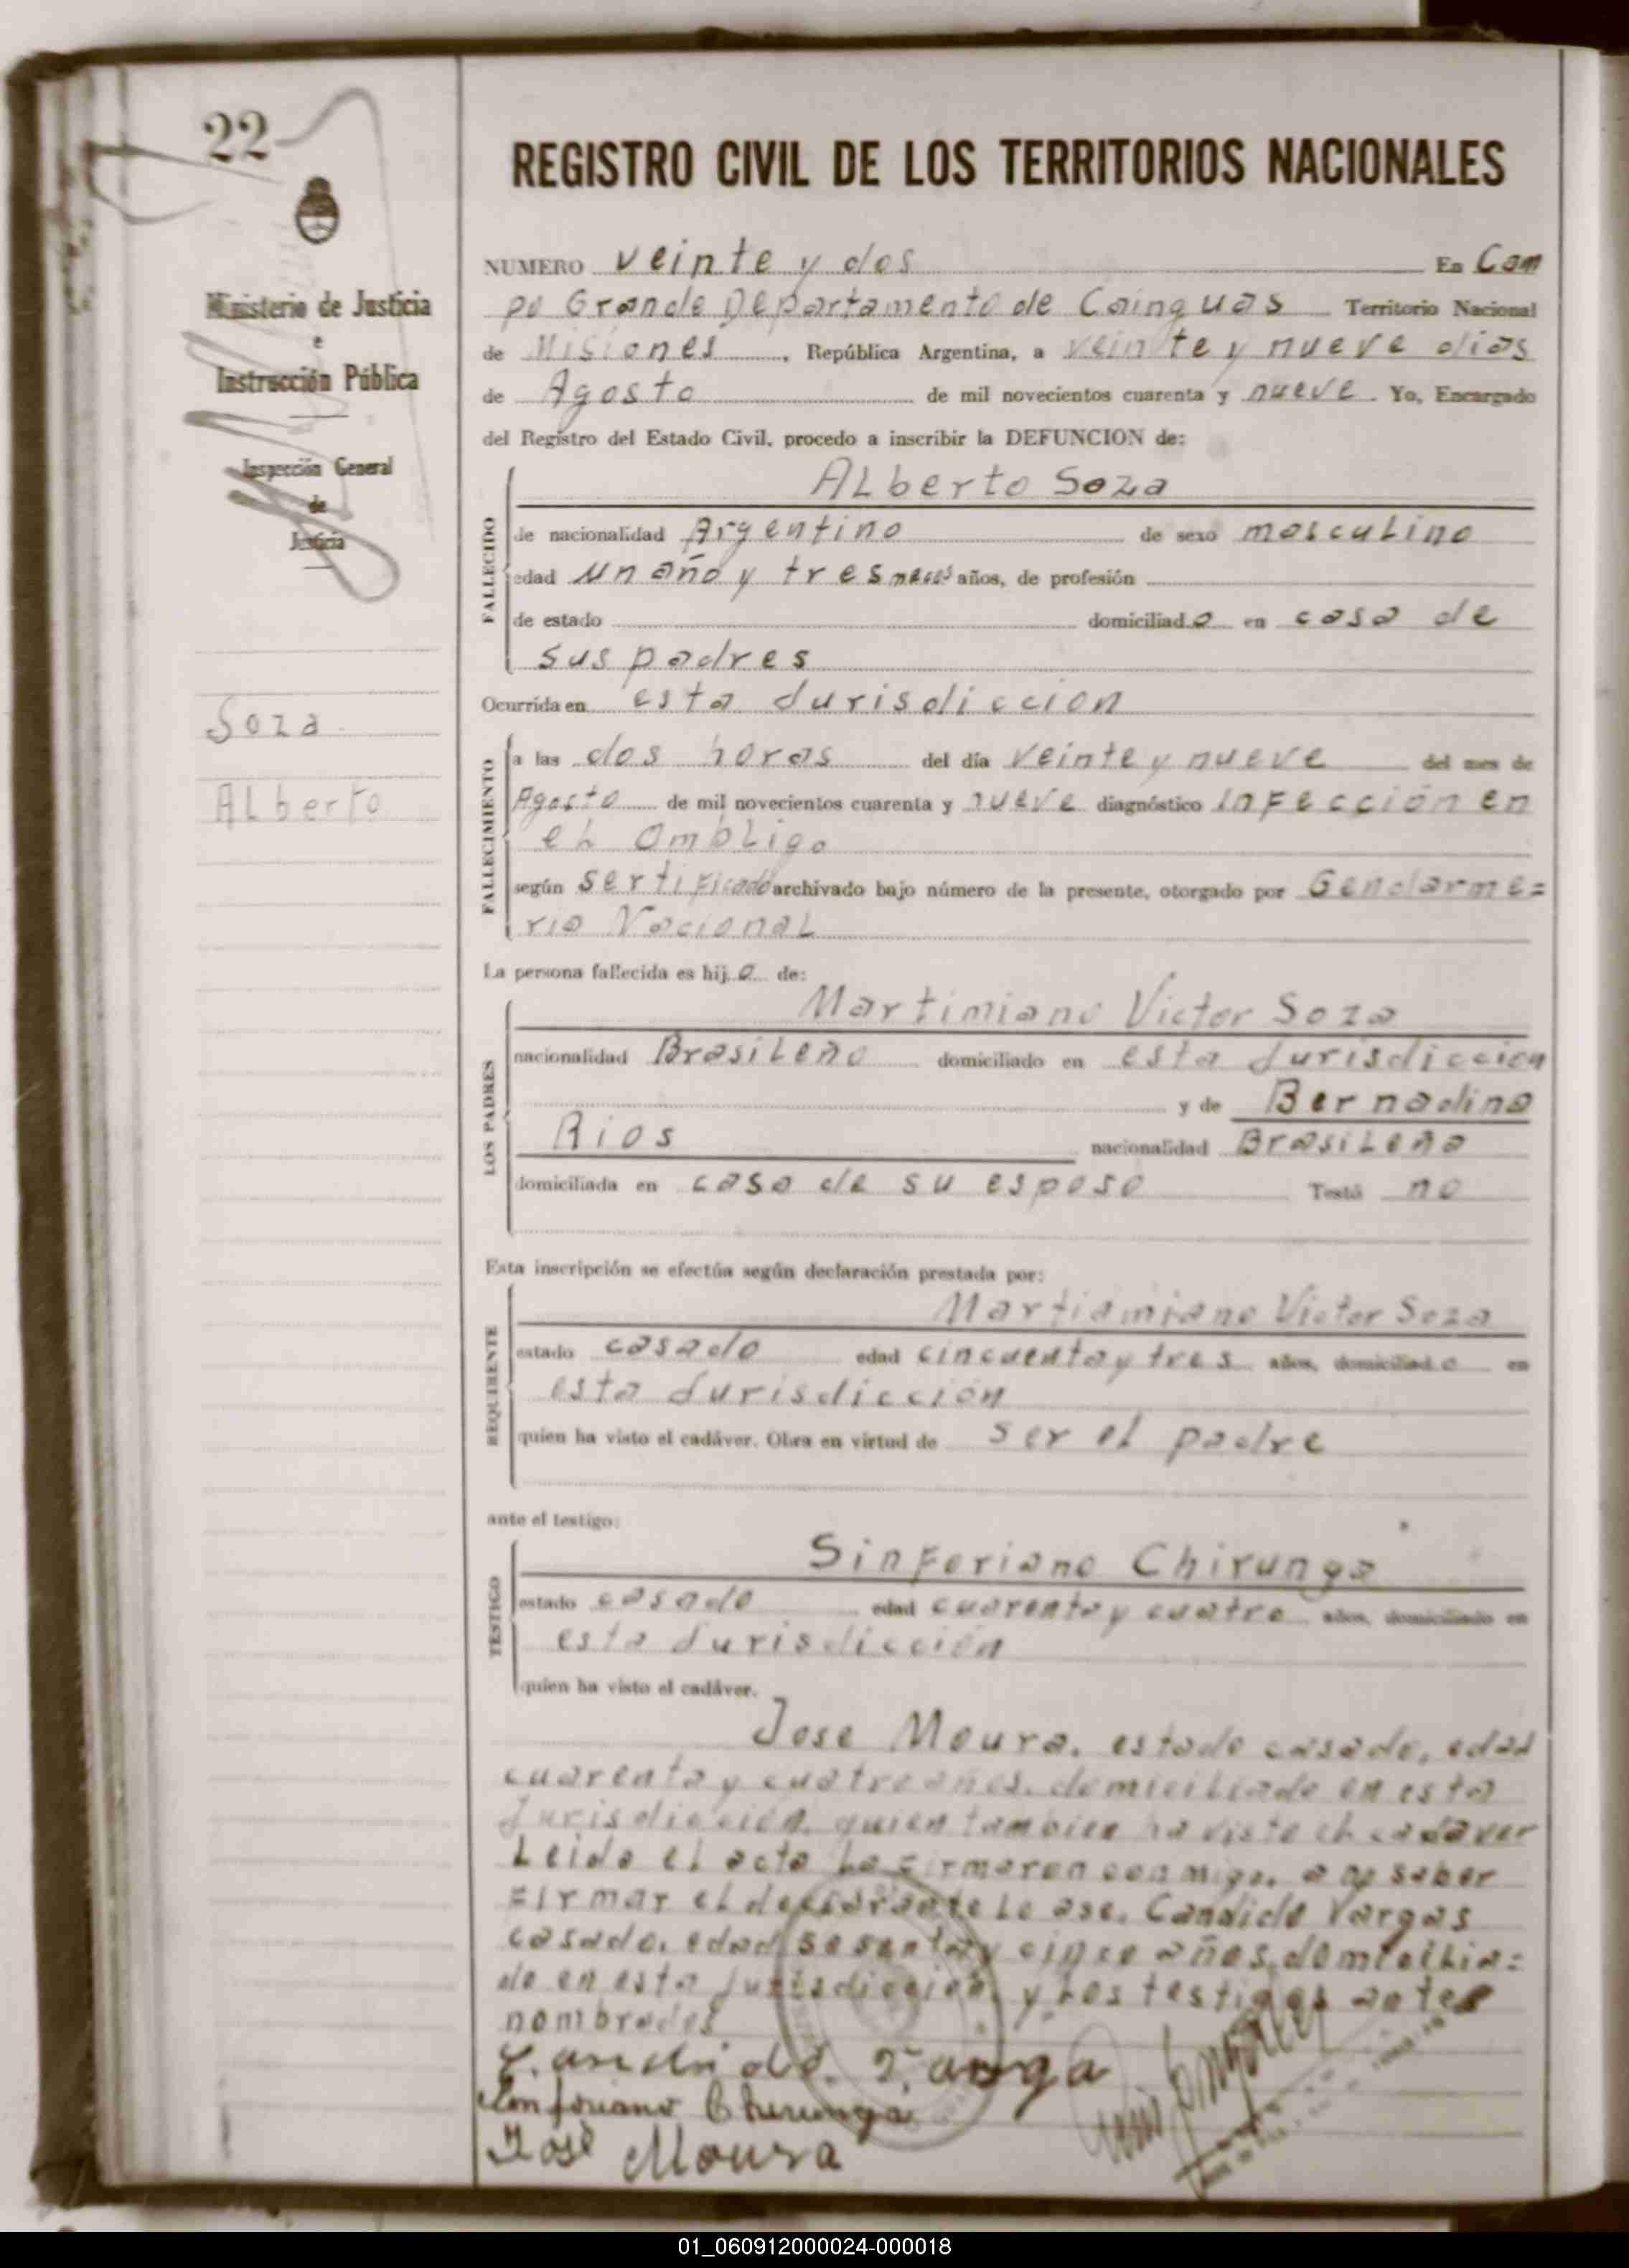 22
REGISTRO CIVIL DE LOS TERRITORIOS NACIONALES
Ministerio de Justicia
e
Instrucción Pública
Inspección General
de
Justicia
Soza
ALberto
NUMERO veinte y dos En Cam
po Grande Departamento de Cainguas Territorio Nacional
de Misiones, República Argentina, a veinte y nueve dias
de Agosto de mil novecientos cuarenta y nueve. Yo, Encargado
del Registro del Estado Civil, procedo a inscribir la DEFUNCION de:
FALLECIDO
ALberto Soza
de nacionalidad Argentino de sexo mascuLino
edad un año y tres meses años, de profesión
de estado domiciliado en casa de
sus padres
Ocurrida en esta Jurisdiccion
FALLECIMIENTO
a las dos horas del día veinte y nueve del mes de
Agosto de mil novecientos cuarenta y nueve diagnóstico inFección en
eL ombLigo
según sertiFicado archivado bajo número de la presente, otorgado por Gendarme=
ria NacionaL
La persona fallecida es hijo de:
LOS PADRES
Martimiano Victor Soza
nacionalidad BrasiLeño domiciliado en esta Jurisdiccion
y de Bernadina
Rios nacionalidad BrasiLeña
domiciliada en casa de su esposo Testó no
Esta inscripción se efectúa según declaración prestada por:
REQUIRENTE
Martiamiano Victor Soza
estado casado edad cincuenta y tres años, domiciliado en
esta Jurisdicción
quien ha visto el cadáver. Obra en virtud de ser eL padre
ante el testigo:
TESTIGO
SinForiano Chirunga
estado casado edad cuarenta y cuatro años, domiciliado en
esta Jurisdicción
quien ha visto el cadáver.
Jose Moura, estado casado, edad
cuarenta y cuatro años, domiciLiado en esta
Jurisdicción, quien tambien ha visto eL cadaver
Leida eL acta La Firmaron conmigo, a no saber
Firmar eL decLarante Lo ase, Candido Vargas
casado, edad sesenta y cinco años, domiciLia=
do en esta Jurisdiccion, y Los testigos antes
nombrados
Candido Varga
Sinforiano Chirunga
José Moura
01_060912000024-000018